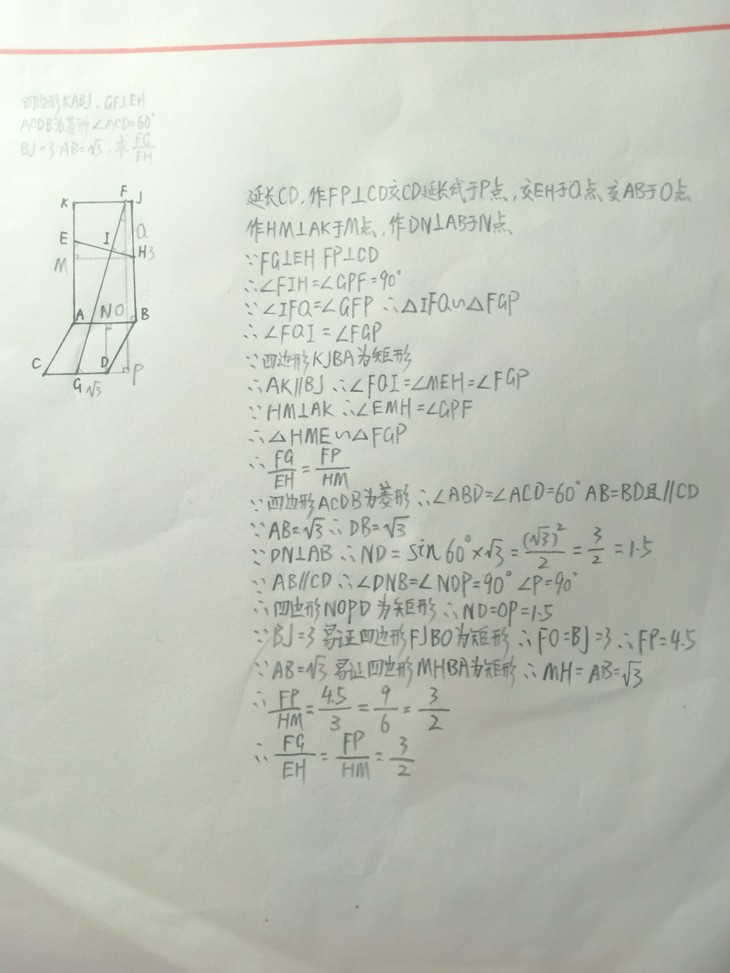 四边形KABJ, GF⊥EH
ACDB为菱形 ∠ACD=60°
BJ=3 AB=√3, 求 FG/EH
K
F
J
E
I
Q
M
H
3
A
N
O
B
C
G
√3
D
P
延长CD, 作FP⊥CD交CD延长线于P点, 交EH于Q点、交AB于O点
作HM⊥AK于M点, 作DN⊥AB于N点、
∵FG⊥EH FP⊥CD
∴∠FIH=∠GPF=90°
∵∠IFQ=∠GFP ∴△IFQ∽△FGP
∴∠FQI=∠FGP
∵四边形KJBA为矩形
∴AK∥BJ ∴∠FQI=∠MEH=∠FGP
∵HM⊥AK ∴∠EMH=∠GPF
∴△HME∽△FGP
∴FG/EH=FP/HM
∵四边形ACDB为菱形 ∴∠ABD=∠ACD=60° AB=BD且∥CD
∵AB=√3 ∴DB=√3
∵DN⊥AB ∴ND=sin60°×√3=(√3)²/2=3/2=1.5
∵AB∥CD ∴∠DNB=∠NDP=90° ∠P=90°
∴四边形NOPD为矩形 ∴ND=OP=1.5
∵BJ=3 易证四边形FJBO为矩形 ∴FO=BJ=3 ∴FP=4.5
∵AB=√3 易证四边形MHBA为矩形 ∴MH=AB=√3
∴FP/HM=4.5/3=9/6=3/2
∴FG/EH=FP/HM=3/2